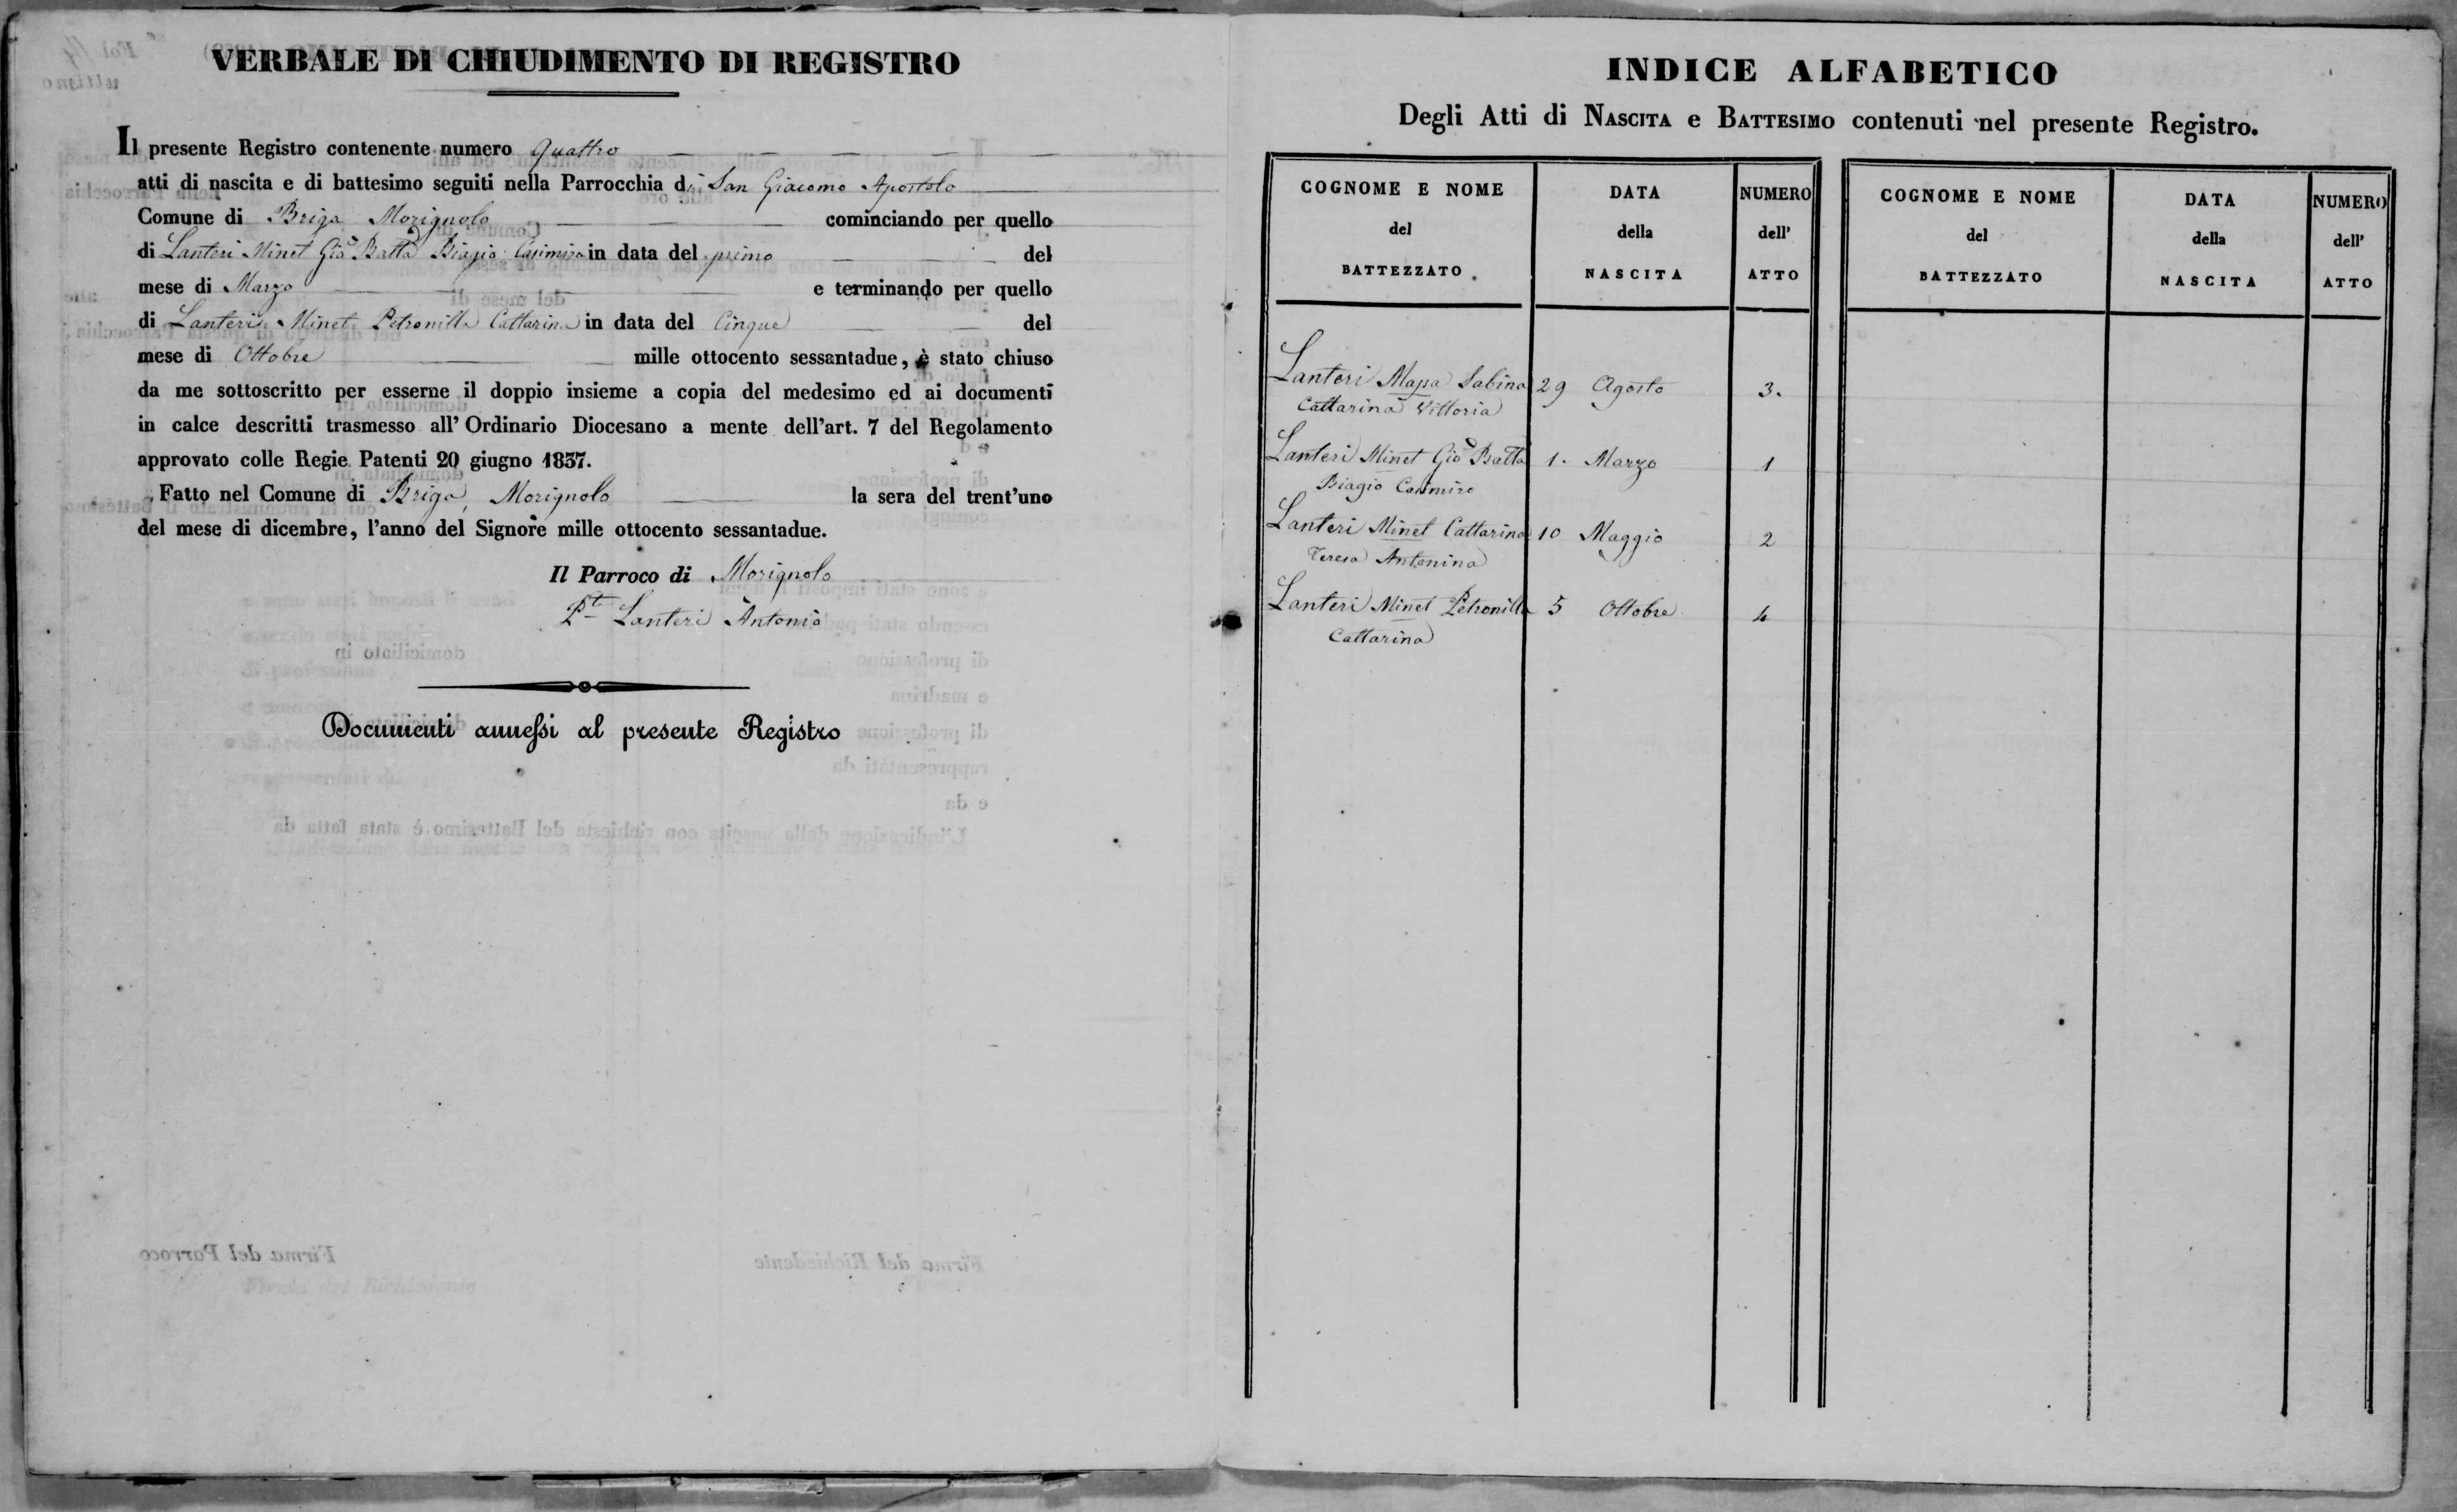 VERBALE DI CHIUDIMENTO DI REGISTRO
Il presente Registro contenente numero Quattro
atti di nascita e di battesimo seguiti nella Parrocchia di San Giacomo Apostolo
Comune di Briga Morignolo cominciando per quello
di Lanteri Minet Gio Batta Biagio Casimiro in data del primo del
mese di Marzo e terminando per quello
di Lanteri Minet Petronilla Cattarina in data del Cinque del
mese di Ottobre mille ottocento sessantadue, è stato chiuso
da me sottoscritto per esserne il doppio insieme a copia del medesimo ed ai documenti
in calce descritti trasmesso all' Ordinario Diocesano a mente dell'art. 7 del Regolamento
approvato colle Regie Patenti 20 giugno 1837.
Fatto nel Comune di Briga, Morignolo la sera del trent'uno
del mese di dicembre, l'anno del Signore mille ottocento sessantadue.
Il Parroco di Morignolo
Lanteri Antonio
Documenti annessi al presente Registro
INDICE ALFABETICO
Degli Atti di NASCITA e BATTESIMO contenuti nel presente Registro.
COGNOME E NOME DATA NUMERO COGNOME E NOME DATA NUMERO
del della dell' del della dell'
BATTEZZATO NASCITA ATTO BATTEZZATO NASCITA ATTO
Lanteri Sabina 29 Agosto 3.
Cattarina Vittoria
Lanteri Minet Gio Batta 1. Marzo 1
Biagio Casimiro
Lanteri Minet Cattarina 10 Maggio 2
Teresa Antonina
Lanteri Minet Petronilla 5 Ottobre 4
Cattarina